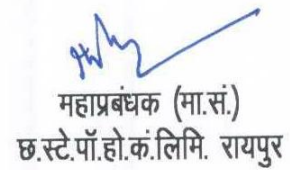 महाप्रबंधक (मा.सं.)
छ.स्टे.पॉ.हो.कं.लिमि. रायपुर